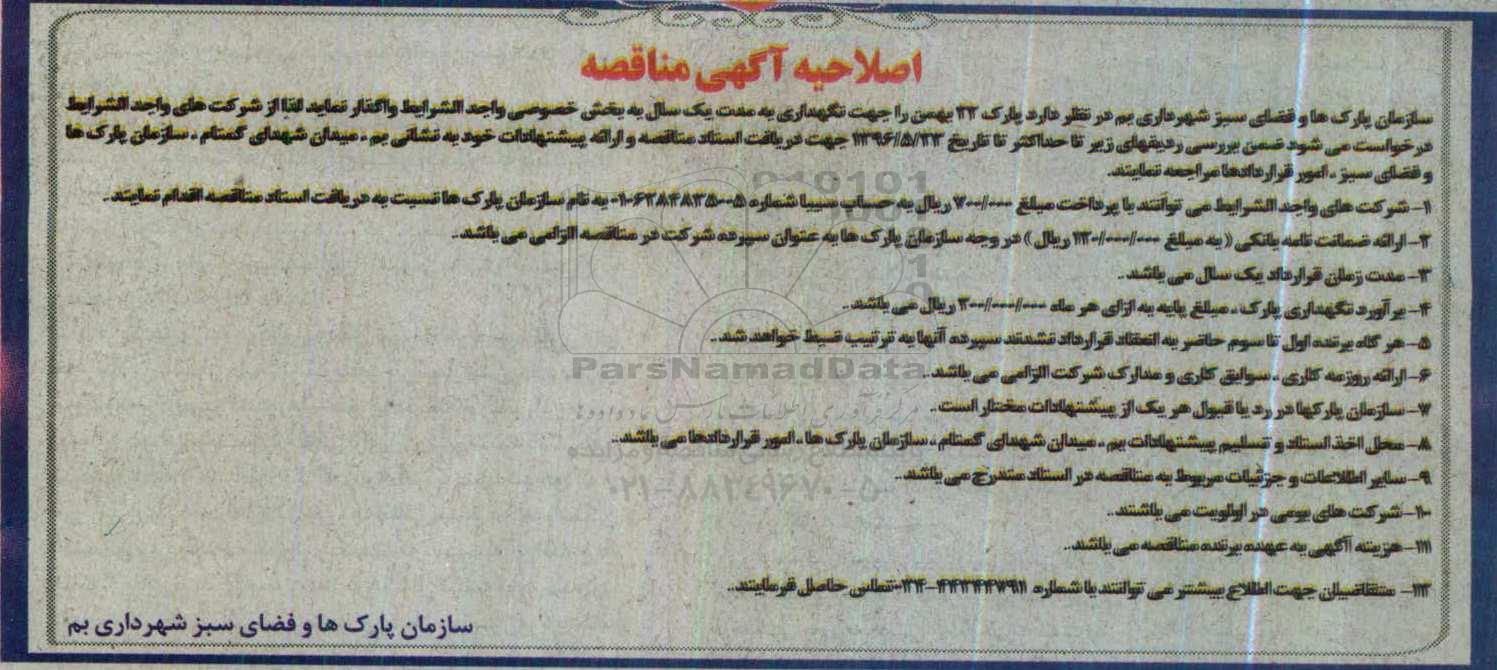 اصلاحیه آگهی مناقصه
سازمان پارک ها و فضای سبز شهرداری بم در نظر دارد پارک ۲۲ بهمن را جهت نگهداری به مدت یک سال به بخش خصوصی واجد الشرایط واگذار نماید لذا از شرکت های واجد الشرایط
درخواست می شود ضمن بررسی ردیفهای زیر تا حداکثر تا تاریخ ۱۳۹۶/۵/۲۳ جهت دریافت اسناد مناقصه و ارائه پیشنهادات خود به نشانی بم ـ میدان شهدای گمنام ـ سازمان پارک ها
و فضای سبز ـ امور قراردادها مراجعه نمایند.
۱- شرکت های واجد الشرایط می توانند با پرداخت مبلغ ۷۰۰/۰۰۰ ریال به حساب سیبا شماره به نام سازمان پارک ها نسبت به دریافت اسناد مناقصه اقدام نمایند.
۲- ارائه ضمانت نامه بانکی ( به مبلغ ۱۲۰/۰۰۰/۰۰۰ ریال ) در وجه سازمان پارک ها به عنوان سپرده شرکت در مناقصه الزامی می باشد.
۳- مدت زمان قرارداد یک سال می باشد.
۴- برآورد نگهداری پارک ـ مبلغ پایه به ازای هر ماه ۲۰۰/۰۰۰/۰۰۰ ریال می باشد.
۵- هر گاه برنده اول تا سوم حاضر به انعقاد قرارداد نشدند سپرده آنها به ترتیب ضبط خواهد شد.
۶- ارائه روزمه کاری ـ سوابق کاری و مدارک شرکت الزامی می باشد.
۷- سازمان پارکها در رد یا قبول هر یک از پیشنهادات مختار است.
۸- محل اخذ اسناد و تسلیم پیشنهادات بم ـ میدان شهدای گمنام ـ سازمان پارک ها ـ امور قراردادها می باشد.
۹- سایر اطلاعات و جزئیات مربوط به مناقصه در اسناد مندرج می باشد.
۱۰- شرکت های بومی در اولویت می باشند.
۱۱- هزینه آگهی به عهده برنده مناقصه می باشد.
۱۲- متقاضیان جهت اطلاع بیشتر می توانند با شماره تماس حاصل فرمایند.
سازمان پارک ها و فضای سبز شهرداری بم
ParsNamadData
۰۲۱-۸۸۳۴۹۶۷۰-۵